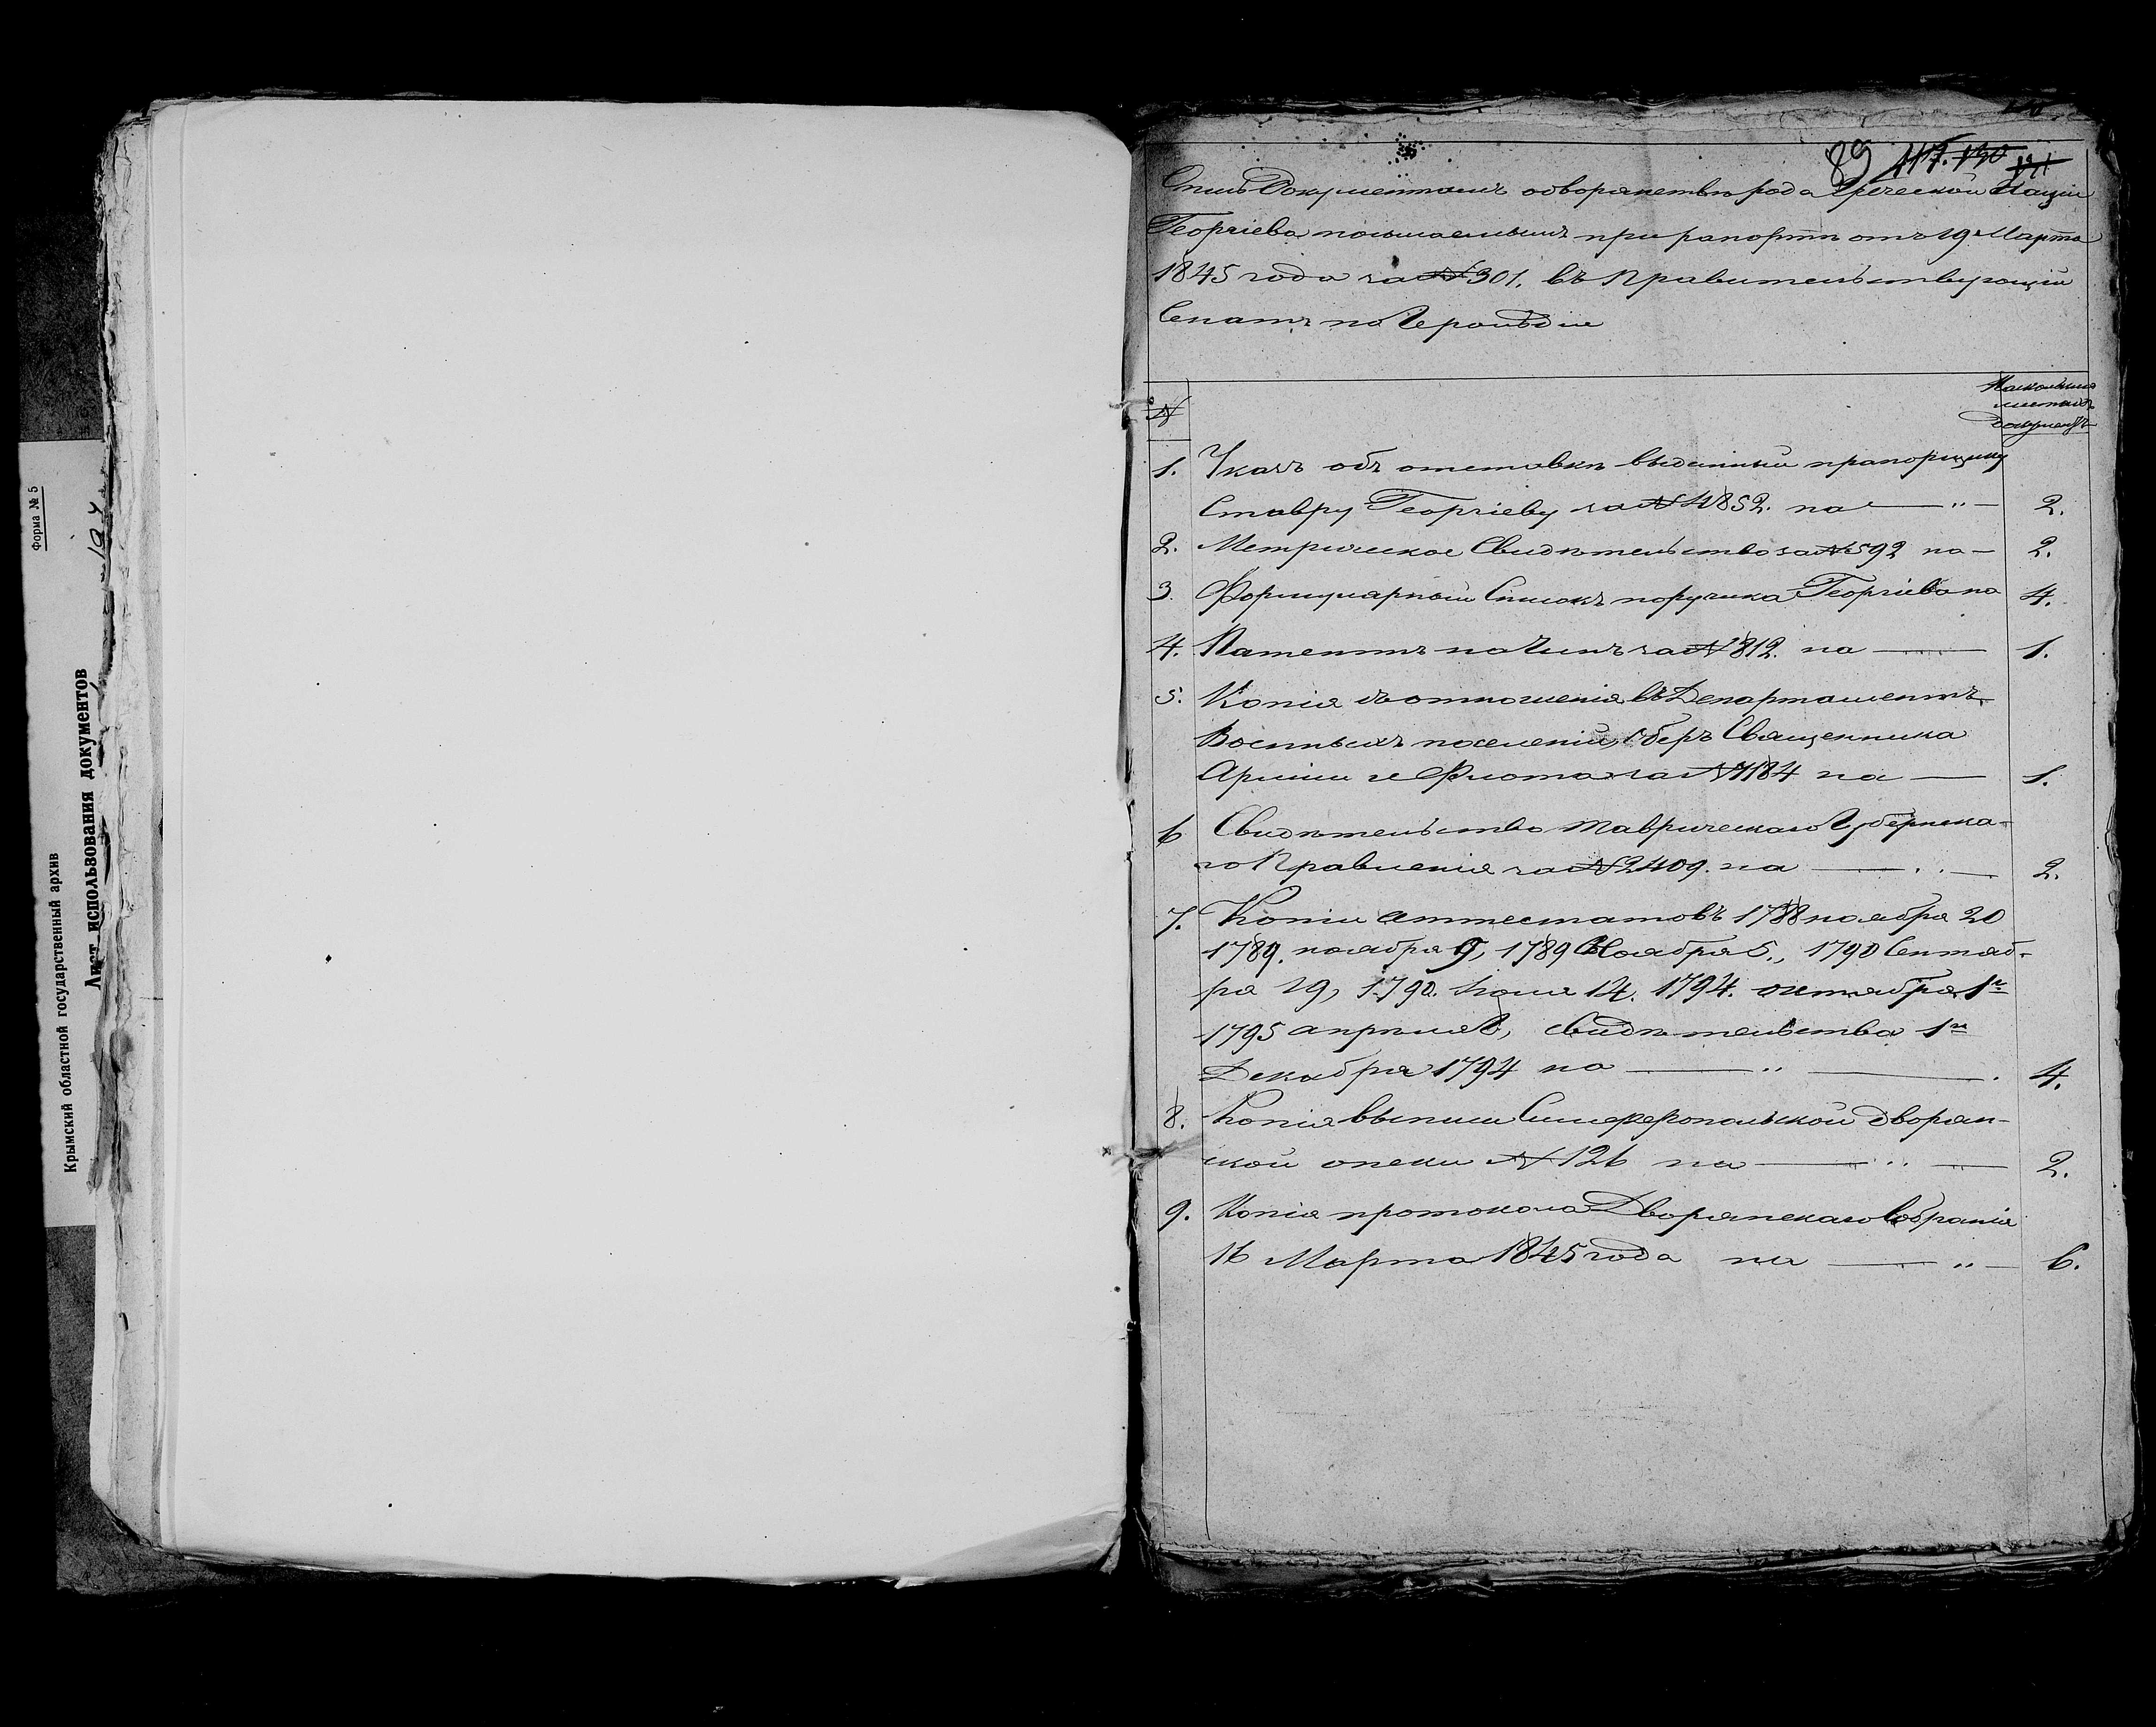 Форма № 5
Крымский областной государственный архив
Лист использования документов
89 117. 130 121
Опись Документамъ о дворянствѣ рода Греческой Націи
Георгіева посылаемымъ при рапортѣ отъ 19 Марта
1845 года за № 301. въ Правительствующій
Сенатъ по Герольдіи
№
На сколькихъ
листахъ
документъ
1. Указъ объ отставкѣ выданный прапорщику
Ставру Георгіеву за № 4852. на — „ — 2.
2. Метрическое Свидѣтельство за № 592 на — 2.
3. Формулярный Списокъ поручика Георгіева на 4.
4. Патентъ на Чинъ за № 812. на — 1.
5. Копія съ отношенія въ Департаментъ
Военныхъ поселеній, Оберъ Священника
Арміи и Флота за № 1184 на — 1.
6 Свидѣтельство Таврическаго Губернска-
го Правленія за № 2409. на — 2.
7. Копіи Аттестатовъ 1788 ноября 20
1789. ноября 9, 1789 Ноября 5., 1790 Сентяб-
ря 29, 1790. Іюля 14. 1794. октября 1го
1795 апрѣля, Свидѣтельства 1го
Декабря 1794 на — „ — 4.
8. Копія выписи Симферопольской дворян-
ской опеки № 126 на — 2.
9. Копія протокола Дворянскаго Собранія
16 Марта 1845 года на — „ — 6.